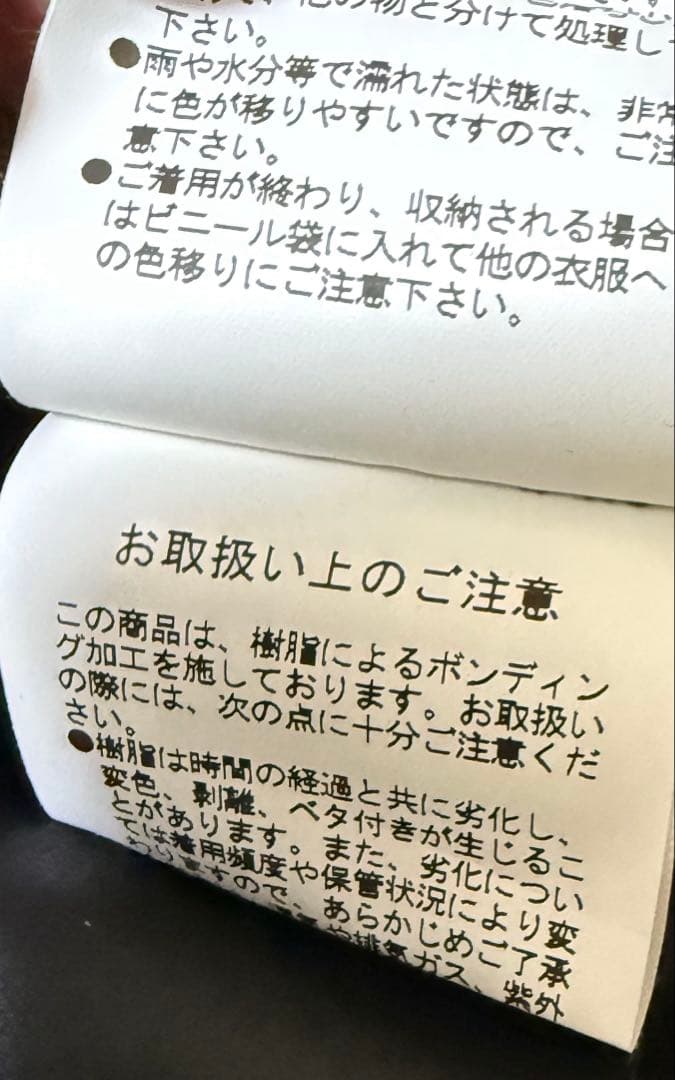 、他の物と分けて処理し
下さい。
●雨や水分等で濡れた状態は、非常
に色が移りやすいですので、ご注
意下さい。
●ご着用が終わり、収納される場合
はビニール袋に入れて他の衣服へ
の色移りにご注意下さい。
お取扱い上のご注意
この商品は、樹脂によるボンディン
グ加工を施しております。お取扱い
の際には、次の点に十分ご注意くだ
さい。
●樹脂は時間の経過と共に劣化し、
変色、剥離、ベタ付きが生じるこ
とがあります。また、劣化につい
ては着用頻度や保管状況により変
わりますので、あらかじめご了承
や排気ガス、紫外